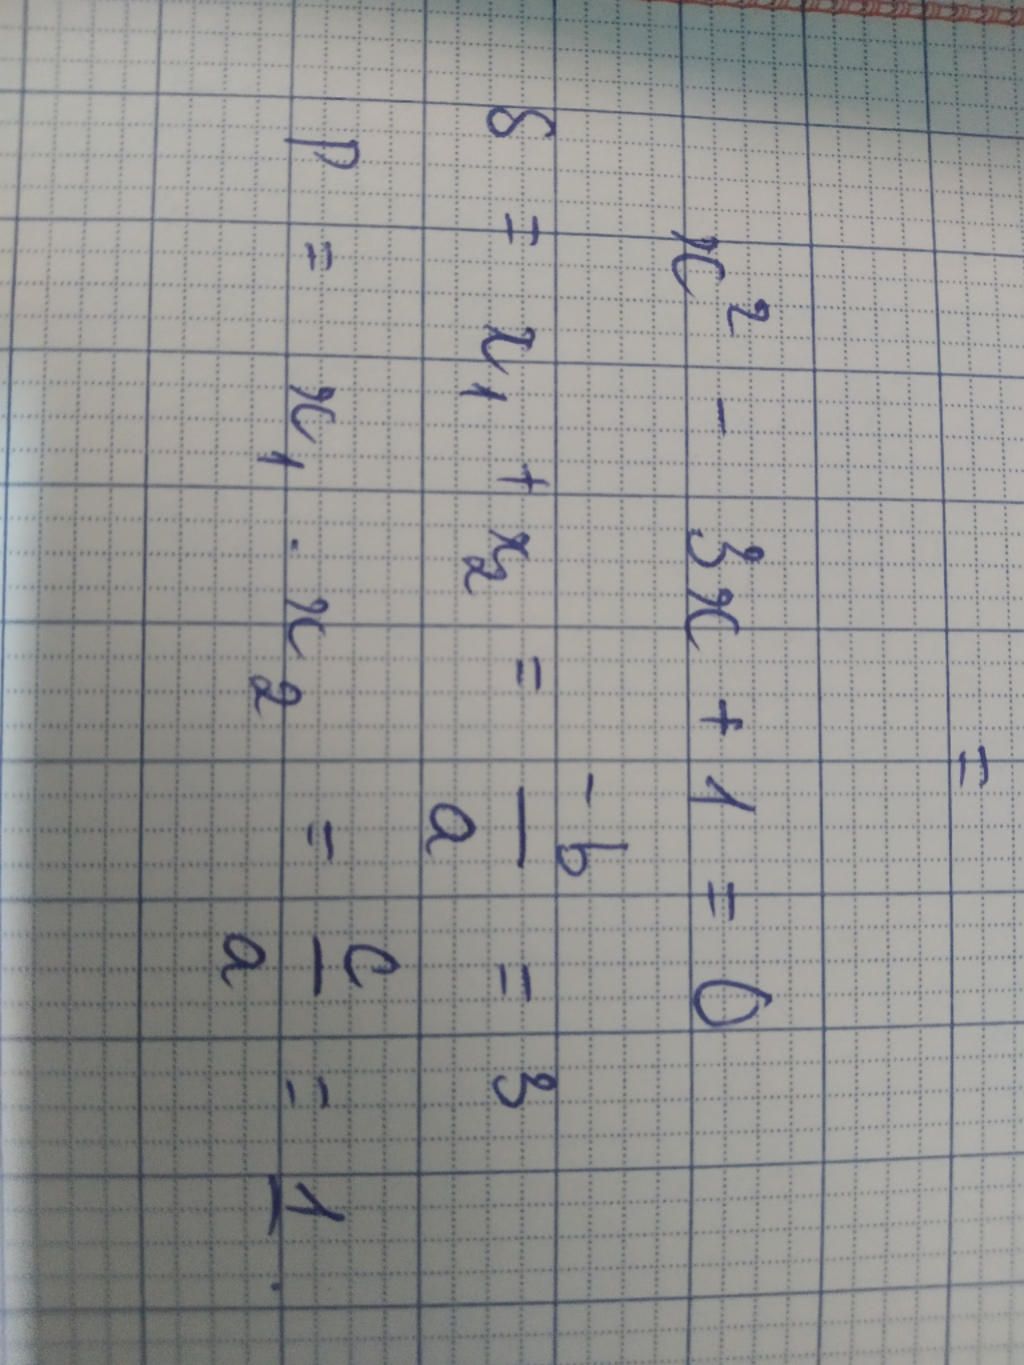 =
x² - 3x + 1 = 0
S = x₁ + x₂ = -b/a = 3
P = x₁ . x₂ = c/a = 1.